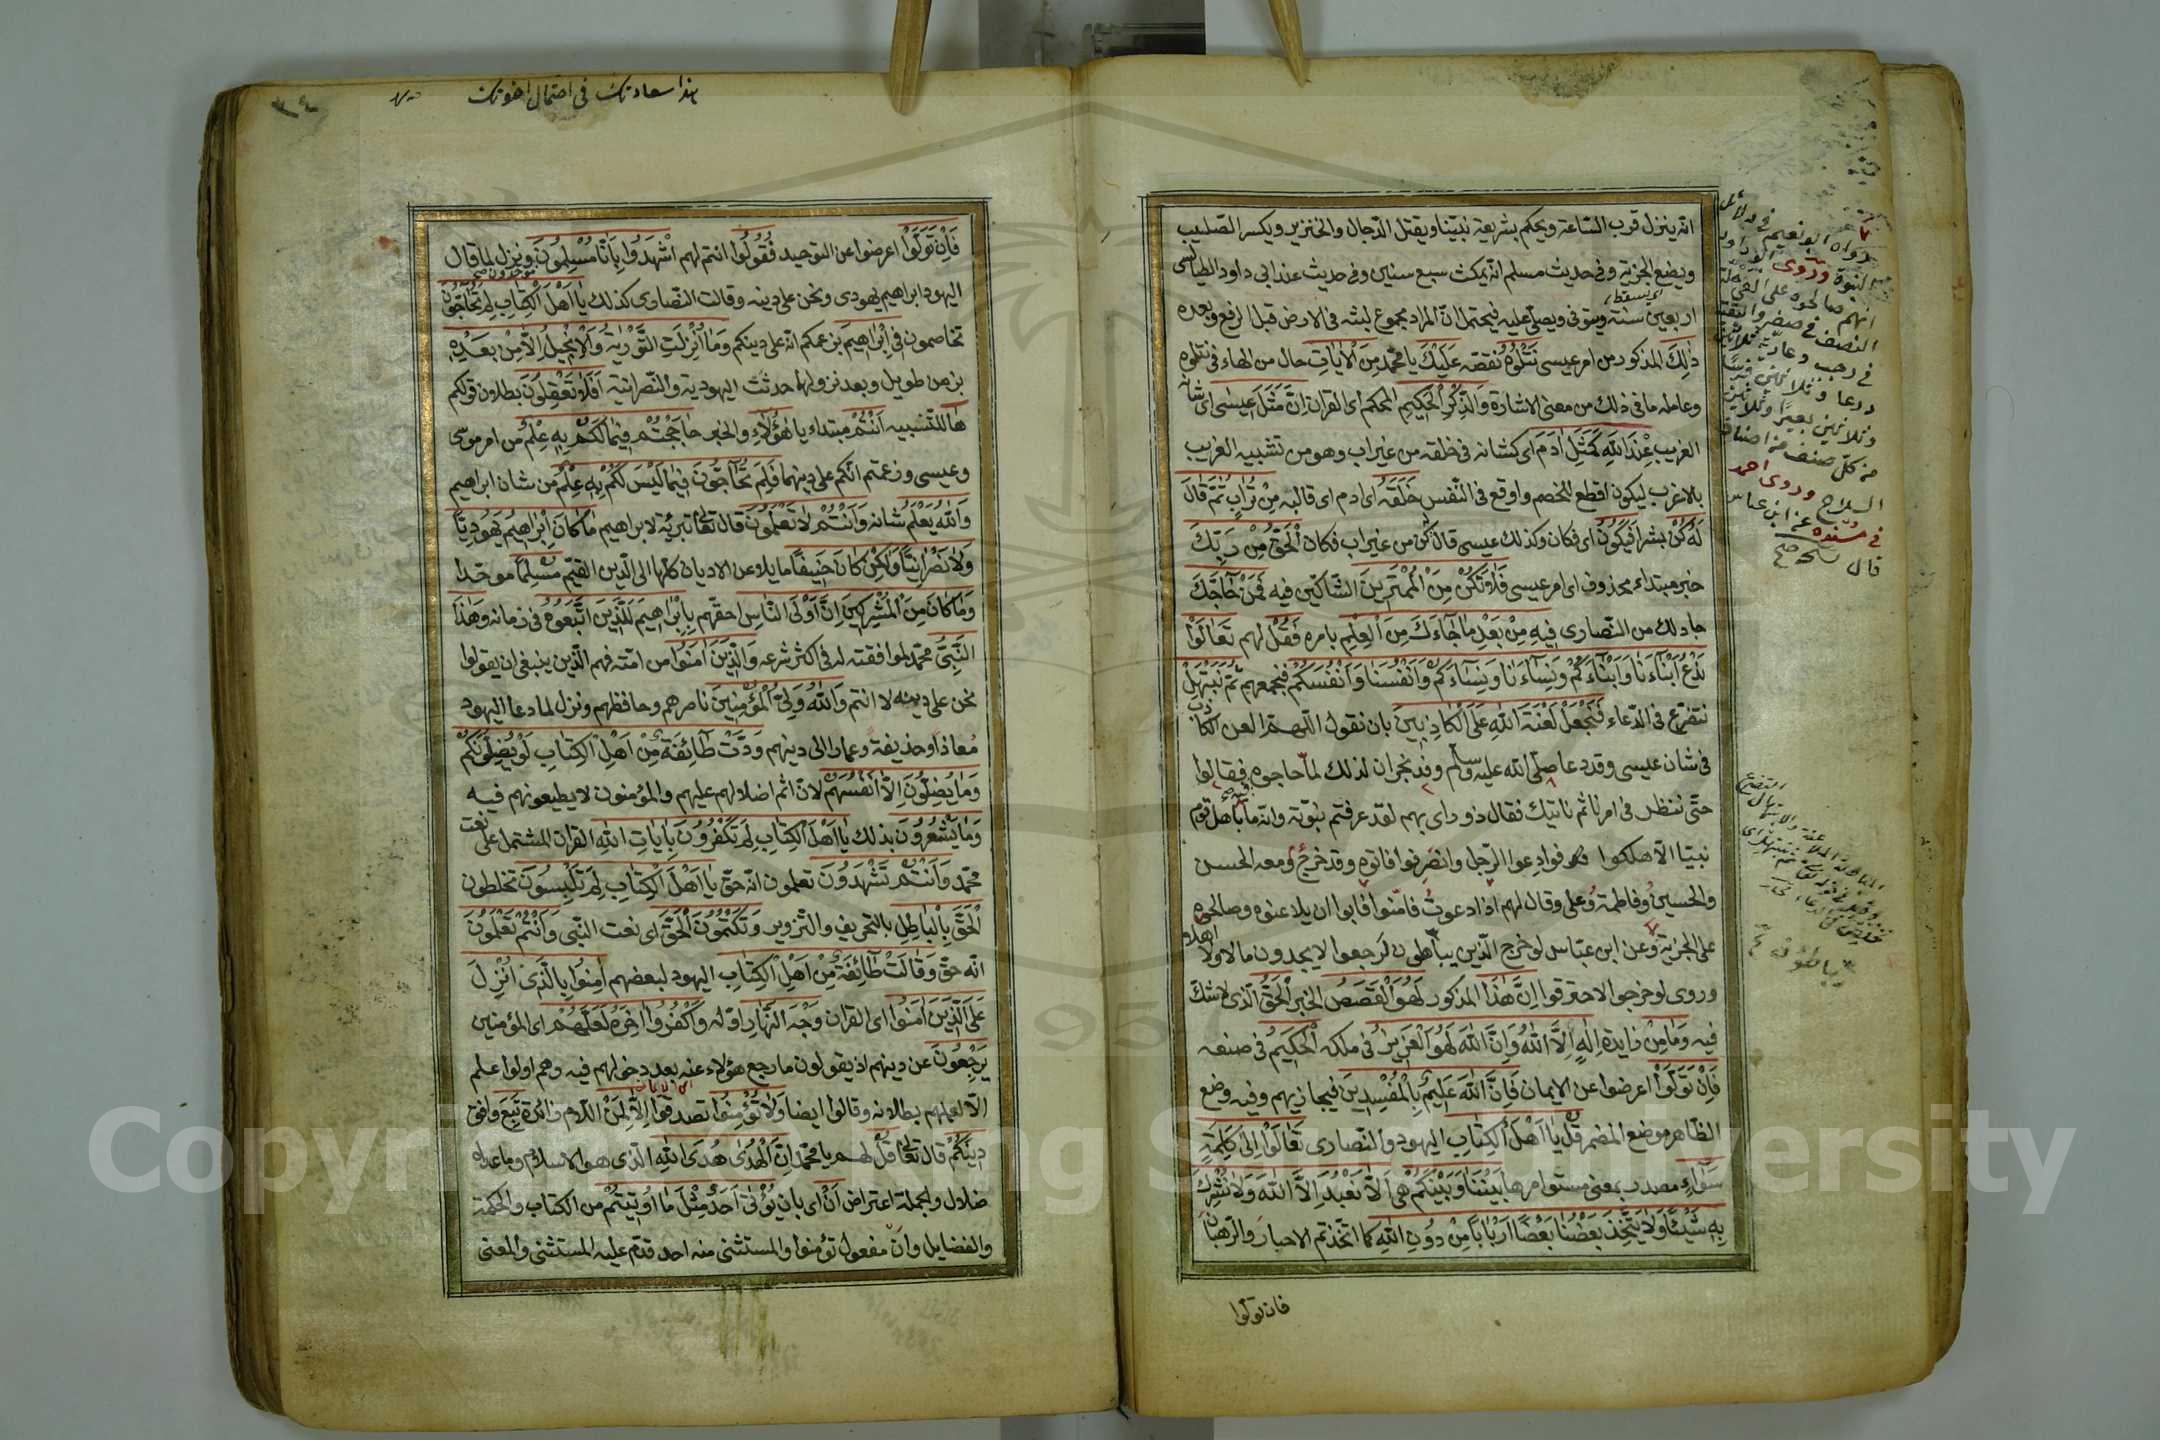 انه ينزل قرب الساعة ويحكم بشريعة نبينا ويقتل الدجال والخنزير ويكسر الصليب
ويضع الجزية وفى حديث مسلم انه يمكث سبع سنين وفى حديث عند ابى داود الطيالسى
اربعين سنة ويتوفى ويصلى عليه فيحتمل ان المراد مجموع لبثه فى الارض قبل الرفع وبعده
ذٰلِكَ المذكور من امر عيسى نَتْلُوهُ نقصه عَلَيْكَ يا محمد مِنَ الْاٰيَاتِ حال من الهاء فى نتلوه
وعامله ما فى ذلك من معنى الاشارة وَالذِّكْرِ الْحَكِيمِ المحكم اى القران اِنَّ مَثَلَ عِيسٰى اى شانه
الغريب عِنْدَ اللّٰهِ كَمَثَلِ اٰدَمَ اى كشانه فى خلقه من غير اب وهو من تشبيه الغريب
بالاغرب ليكون اقطع للخصم واوقع فى النفس خَلَقَهُ اى ادم اى قالبه مِنْ تُرَابٍ ثُمَّ قَالَ
لَهُ كُنْ بشرا فَيَكُونُ اى فكان وكذلك عيسى قال كن من غير اب فكان اَلْحَقُّ مِنْ رَبِّكَ
خبر مبتداء محذوف اى امر عيسى فَلَا تَكُنْ مِنَ الْمُمْتَرِينَ الشاكين فيه فَمَنْ حَاجَّكَ
جادلك من النصارى فِيهِ مِنْ بَعْدِ مَا جَاءَكَ مِنَ الْعِلْمِ بامره فَقُلْ لهم تَعَالَوْا
نَدْعُ اَبْنَاءَنَا وَاَبْنَاءَكُمْ وَنِسَاءَنَا وَنِسَاءَكُمْ وَاَنْفُسَنَا وَاَنْفُسَكُمْ فنجمعهم ثُمَّ نَبْتَهِلْ
نتضرع فى الدعاء فَنَجْعَلْ لَعْنَةَ اللّٰهِ عَلَى الْكَاذِبِينَ بان نقول اللهم العن الكاذب
فى شان عيسى وقد دعا صلى الله عليه وسلم وفد نجران لذلك لما حاجوه فيه فقالوا
حتى ننظر فى امرنا ثم ناتيك فقال ذو رايهم لقد عرفتم نبوته وانه ما باهل قوم
نبيا الا هلكوا فوادعوا الرجل وانصرفوا فاتوه وقد خرج ومعه الحسن
والحسين وفاطمة وعلى وقال لهم اذا دعوت فامنوا فابوا ان يلاعنوه وصالحوه
على الجزية وعن ابن عباس لو خرج الذين يباهلون لرجعوا لا يجدون مالا ولا اهلا
وروى لو خرجوا لاحترقوا اِنَّ هٰذَا المذكور لَهُوَ الْقَصَصُ الخبر الْحَقُّ الذى لا شك
فيه وَمَا مِنْ زايدة اِلٰهٍ اِلَّا اللّٰهُ وَاِنَّ اللّٰهَ لَهُوَ الْعَزِيزُ فى ملكه الْحَكِيمُ فى صنعه
فَاِنْ تَوَلَّوْا اعرضوا عن الايمان فَاِنَّ اللّٰهَ عَلِيمٌ بِالْمُفْسِدِينَ فيجازيهم وفيه وضع
الظاهر موضع المضمر قُلْ يَا اَهْلَ الْكِتَابِ اليهود والنصارى تَعَالَوْا اِلٰى كَلِمَةٍ
سَوَاءٍ مصدر بمعنى مستو امرها بَيْنَنَا وَبَيْنَكُمْ هى اَلَّا نَعْبُدَ اِلَّا اللّٰهَ وَلَا نُشْرِكَ
بِهِ شَيْئًا وَلَا يَتَّخِذَ بَعْضُنَا بَعْضًا اَرْبَابًا مِنْ دُونِ اللّٰهِ كما اتخذتم الاحبار والرهبان
فان تولوا
رواه ابو نعيم فى دلائل
النبوة وروى ابو داود
انهم صالحوه على الفى حلة
النصف فى صفر والبقية
فى رجب وعارية ثلاثين
درعا وثلاثين فرسا
وثلاثين بعيرا وثلاثين
من كل صنف من اصناف
السلاح وروى احمد
فى مسنده عن ابن عباس
قال صح
فَاِنْ تَوَلَّوْا اعرضوا عن التوحيد فَقُولُوا انتم لهم اشْهَدُوا بِاَنَّا مُسْلِمُونَ ونزل لما قال
موحدون صح
اليهود ابراهيم يهودى ونحن على دينه وقالت النصارى كذلك يَا اَهْلَ الْكِتَابِ لِمَ تُحَاجُّونَ
تخاصمون فِى اِبْرَاهِيمَ بزعمكم انه على دينكم وَمَا اُنْزِلَتِ التَّوْرٰيةُ وَالْاِنْجِيلُ اِلَّا مِنْ بَعْدِهِ
بزمن طويل وبعد نزولهما حدثت اليهودية والنصرانية اَفَلَا تَعْقِلُونَ بطلان قولكم
هَا للتنبيه اَنْتُمْ مبتداء يا هٰؤُلَاءِ والخبر حَاجَجْتُمْ فِيمَا لَكُمْ بِهِ عِلْمٌ من امر موسى
وعيسى وزعمتم انكم على دينهما فَلِمَ تُحَاجُّونَ فِيمَا لَيْسَ لَكُمْ بِهِ عِلْمٌ من شان ابراهيم
وَاللّٰهُ يَعْلَمُ شانه وَاَنْتُمْ لَا تَعْلَمُونَ قال تعالى تبرئة لابراهيم مَا كَانَ اِبْرَاهِيمُ يَهُودِيًّا
وَلَا نَصْرَانِيًّا وَلٰكِنْ كَانَ حَنِيفًا مايلا عن الاديان كلها الى الدين القيم مُسْلِمًا موحدا
وَمَا كَانَ مِنَ الْمُشْرِكِينَ اِنَّ اَوْلَى النَّاسِ احقهم بِاِبْرَاهِيمَ لَلَّذِينَ اتَّبَعُوهُ فى زمانه وَهٰذَا
النَّبِىُّ محمد لموافقته له فى اكثر شرعه وَالَّذِينَ اٰمَنُوا من امته فهم الذين ينبغى ان يقولوا
نحن على دينه لا انتم وَاللّٰهُ وَلِىُّ الْمُؤْمِنِينَ ناصرهم وحافظهم ونزل لما دعا اليهود
معاذا وحذيفة وعمارا الى دينهم وَدَّتْ طَائِفَةٌ مِنْ اَهْلِ الْكِتَابِ لَوْ يُضِلُّونَكُمْ
وَمَا يُضِلُّونَ اِلَّا اَنْفُسَهُمْ لان اثم اضلالهم عليهم والمؤمنون لا يطيعونهم فيه
وَمَا يَشْعُرُونَ بذلك يَا اَهْلَ الْكِتَابِ لِمَ تَكْفُرُونَ بِاٰيَاتِ اللّٰهِ القران المشتمل على نعت
محمد وَاَنْتُمْ تَشْهَدُونَ تعلمون انه حق يَا اَهْلَ الْكِتَابِ لِمَ تَلْبِسُونَ تخلطون
الْحَقَّ بِالْبَاطِلِ بالتحريف والتزوير وَتَكْتُمُونَ الْحَقَّ اى نعت النبى وَاَنْتُمْ تَعْلَمُونَ
انه حق وَقَالَتْ طَائِفَةٌ مِنْ اَهْلِ الْكِتَابِ اليهود لبعضهم اٰمِنُوا بِالَّذِى اُنْزِلَ
عَلَى الَّذِينَ اٰمَنُوا اى القران وَجْهَ النَّهَارِ اوله وَاكْفُرُوا اٰخِرَهُ لَعَلَّهُمْ اى المؤمنين
يَرْجِعُونَ عن دينهم اذ يقولون ما رجع هؤلاء عنه بعد دخولهم فيه وهم اولوا علم
الا لعلمهم بطلانه وقالوا ايضا وَلَا تُؤْمِنُوا تصدقوا اِلَّا لِمَنْ اللام زائدة تَبِعَ وافق
دِينَكُمْ قال تعالى قُلْ لهم يا محمد اِنَّ الْهُدٰى هُدَى اللّٰهِ الذى هو الاسلام وما عداه
ضلال والجملة اعتراض اَنْ اى بان يُؤْتٰى اَحَدٌ مِثْلَ مَا اُوتِيتُمْ من الكتاب والحكمة
والفضايل وان مفعول تؤمنوا والمستثنى منه احد قدم عليه المستثنى والمعنى
Copyright © King Saud University